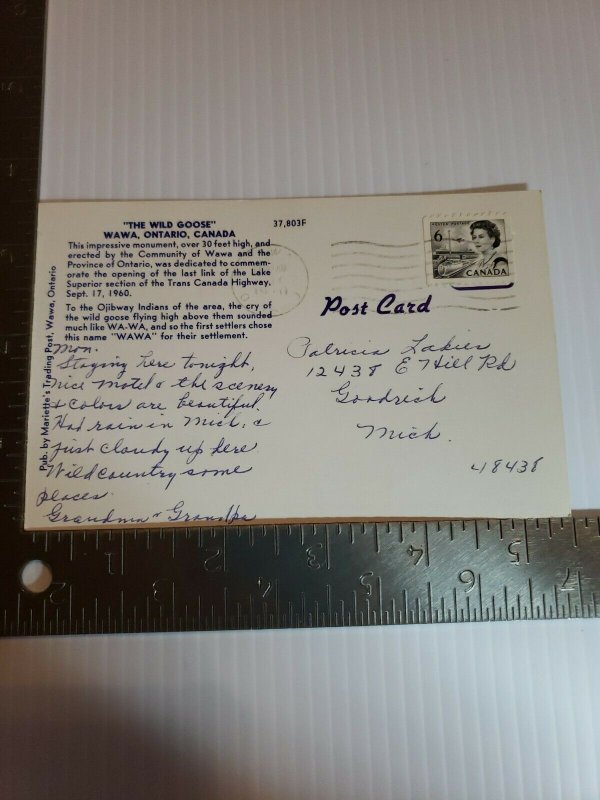 "THE WILD GOOSE"
WAWA, ONTARIO, CANADA
37,803F
This impressive monument, over 30 feet high, and
erected by the Community of Wawa and the
Province of Ontario, was dedicated to commem-
orate the opening of the last link of the Lake
Superior section of the Trans Canada Highway,
Sept. 17, 1960.
To the Ojibway Indians of the area, the cry of
the wild goose flying high above them sounded
much like WA-WA, and so the first settlers chose
this name "WAWA" for their settlement.
Pub. by Mariette's Trading Post, Wawa, Ontario
6
CANADA
Post Card
Mon.
Staying here tonight,
nice motel & the scenery
& colors are beautiful.
Had rain in Mich, &
just cloudy up here
Wild country some
places
Grandma & Grandpa
Patricia Lakies
12438 E Hill Rd
Goodrich
Mich.
48438
2 1 1 2 3 3 4 5 5 6 7